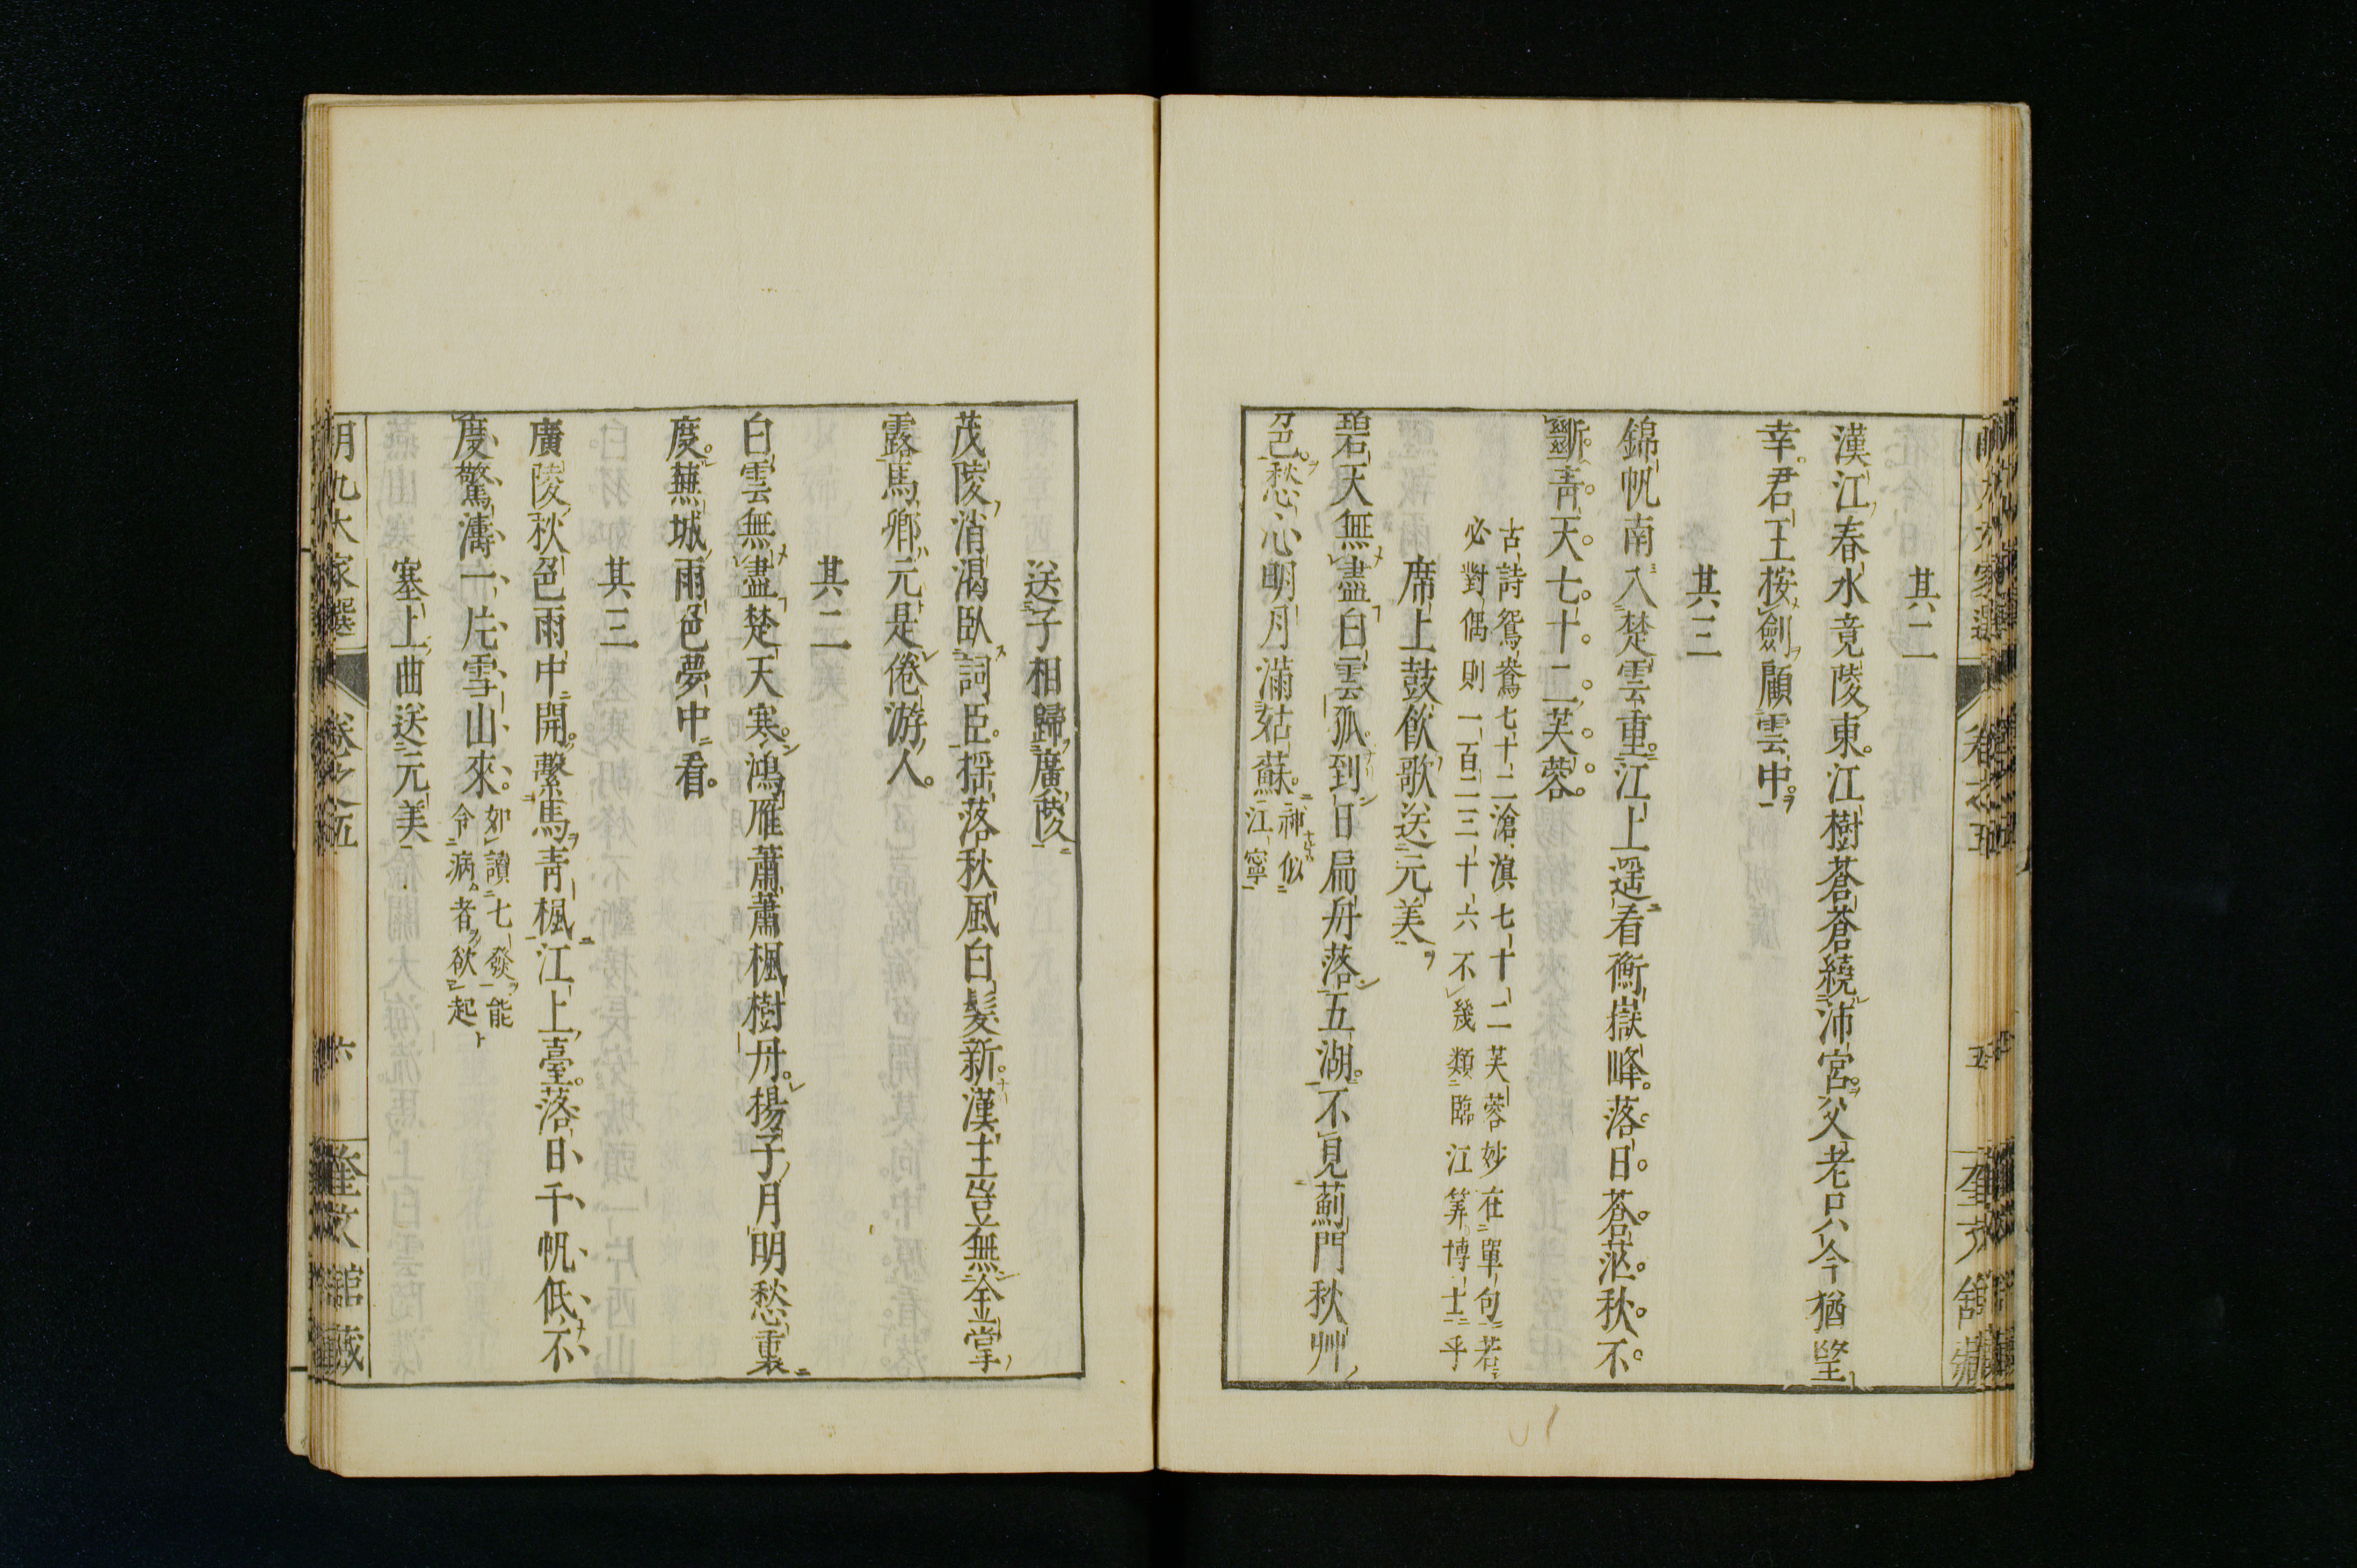 其二
漢江春水竟陵東江樹蒼蒼繞沛宮父老只今猶望
幸君王按劒顧雲中
其三
錦帆南入楚雲重江上遥看衡嶽峰落日蒼茫秋不
斷青天七十二芙蓉
古詩鴛鴦七十二滄溟七十二芙蓉妙在單句若
必對偶則一百二三十六不幾類臨江筭博士乎
席上鼓飲歌送元美
碧天無盡白雲孤到日扁舟落五湖不見薊門秋艸
色愁心明月滿姑蘇
神似
江寧
送子相歸廣陵
茂陵消渴臥詞臣揺落秋風白髮新漢主豈無金掌
露馬卿元是倦游人
其二
白雲無盡楚天寒鴻雁蕭蕭楓樹丹揚子月明愁裏
度蕪城雨色夢中看
其三
廣陵秋色雨中開繫馬青楓江上臺落日千帆低不
度驚濤一片雪山來
如讀七發能
令病者欲起
塞上曲送元美
明九大家選
卷之五
六
奎文館藏